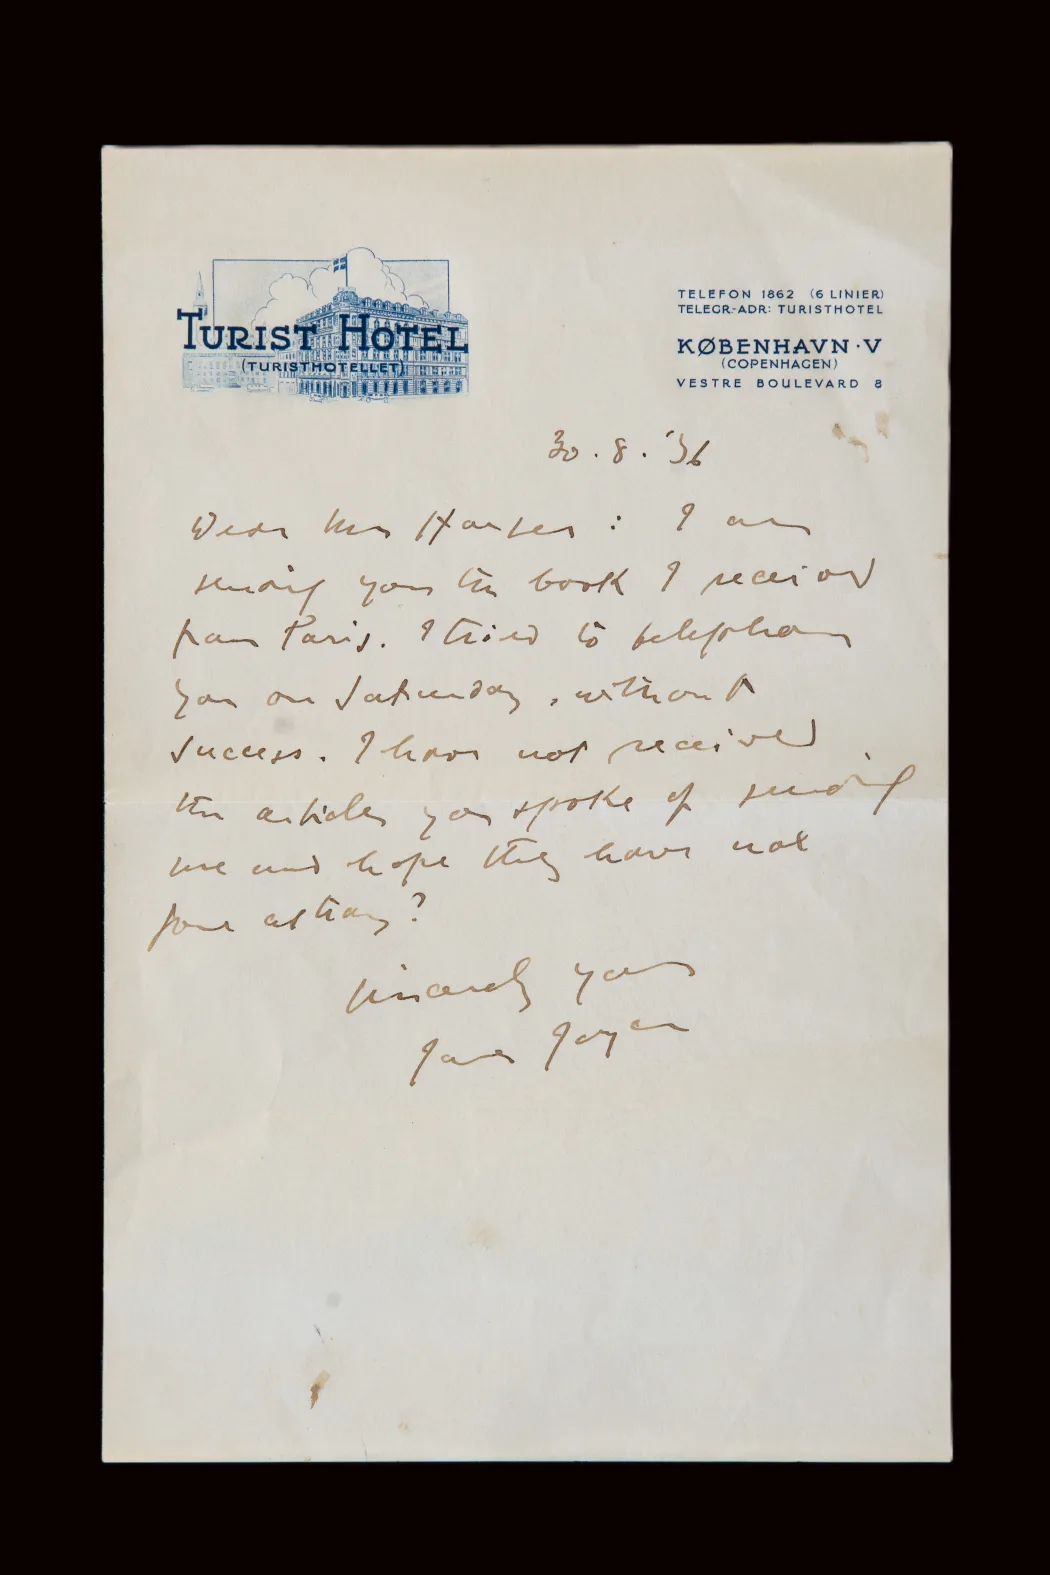 TURIST HOTEL
(TURISTHOTELLET)
TELEFON 1862 (6 LINIER)
TELEGR.-ADR: TURISTHOTEL
KØBENHAVN·V
(COPENHAGEN)
VESTRE BOULEVARD 8
30.8.'36
Dear Mrs : I am
sending you the book I received
from Paris. I tried to telephone
you on Saturday, without
success. I have not received
the articles you spoke of sending
me and hope they have not
gone astray?
sincerely yours
James Joyce